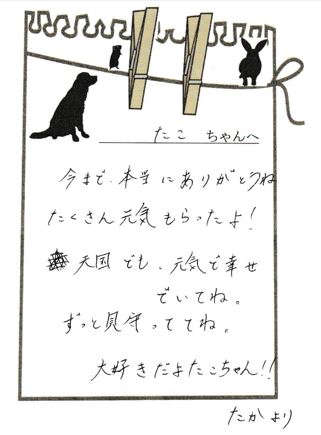 たこ ちゃんへ
今まで、本当にありがとうね
たくさん元気もらったよ!
天国でも、元気で幸せ
でいてね。
ずっと見守っててね。
大好きだよたこちゃん!!
たかより